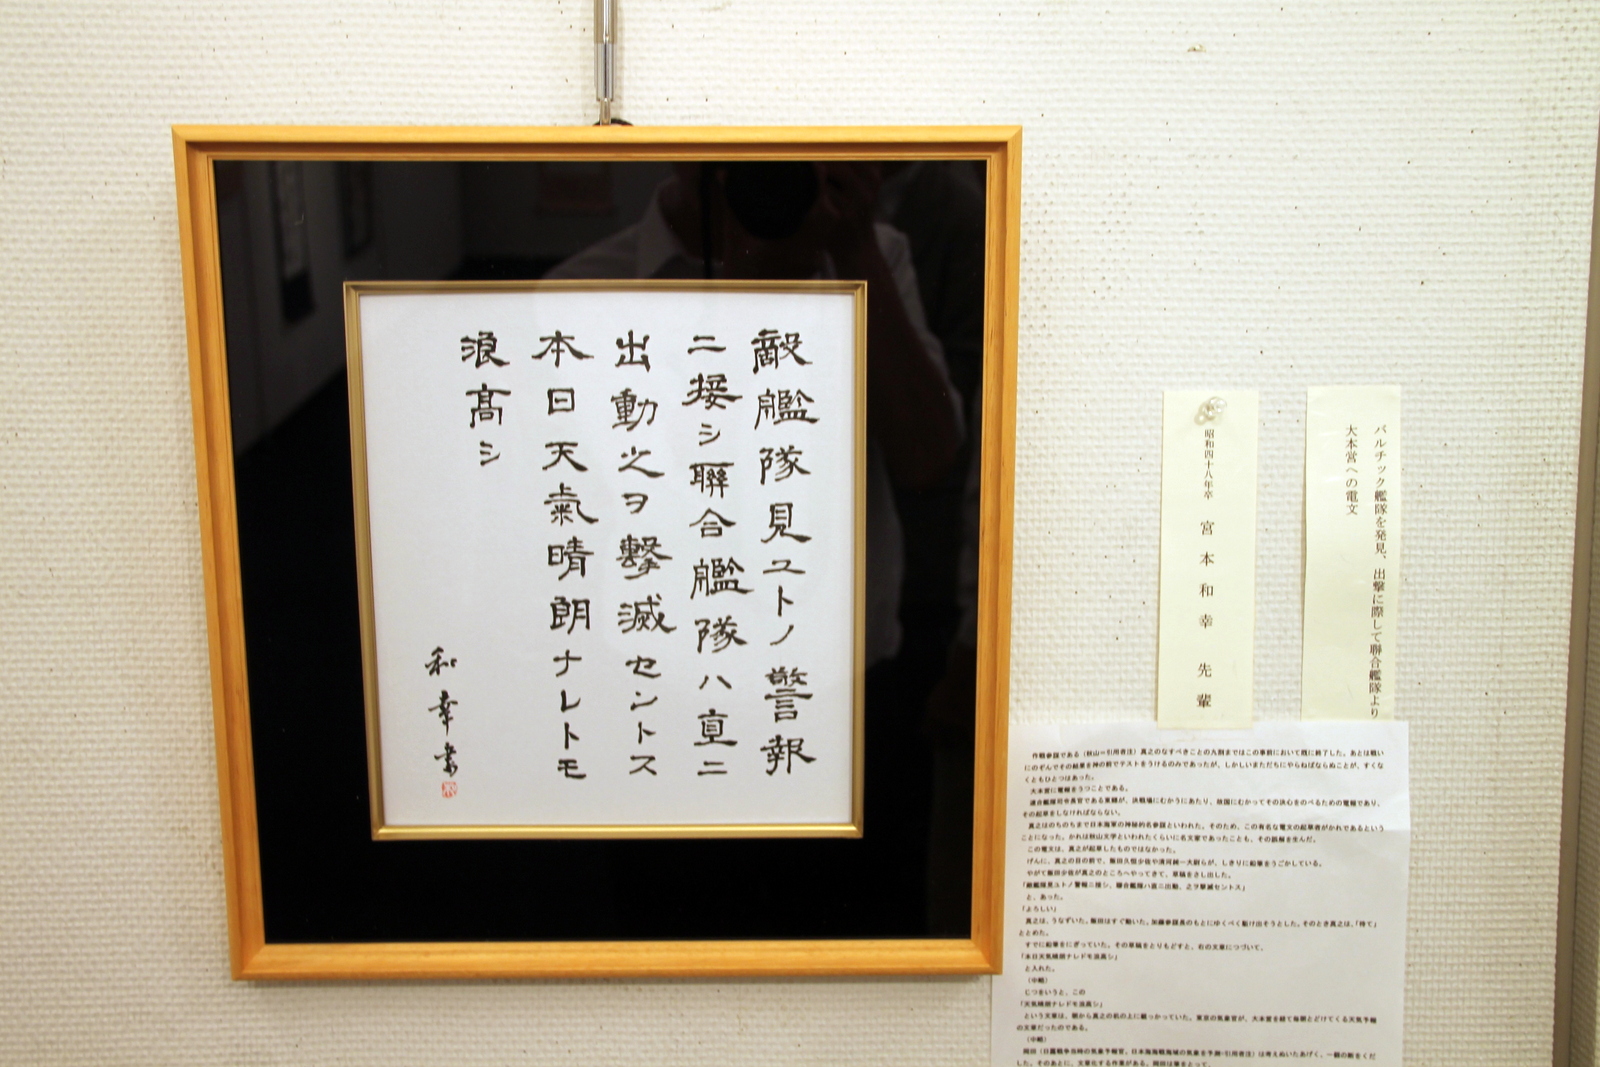 敵艦隊見ユトノ警報
ニ接シ聯合艦隊ハ直ニ
出動之ヲ撃滅セントス
本日天氣晴朗ナレトモ
浪髙シ
和幸書
バルチック艦隊を発見、出撃に際して聯合艦隊より
大本営への電文
昭和四十八年卒 宮本和幸 先輩
作戦参謀である(秋山=引用者注)真之のなすべきことの九割まではこの事前において既に終了した。あとは戦い
にのぞんでその結果を神の前でテストをうけるのみであったが、しかしいまただちにやらねばならぬことが、すくな
くともひとつはあった。
大本営に電報をうつことである。
連合艦隊司令長官である東郷が、決戦場にむかうにあたり、故国にむかってその決心をのべるための電報であり、
その起草をしなければならない。
真之はのちのちまで日本海軍の神秘的名参謀といわれた。そのため、この有名な電文の起草者がかれであるという
ことになった。かれは秋山文学といわれたくらいに名文家であったことも、その誤解を生んだ。
この電文は、真之が起草したものではなかった。
げんに、真之の目の前で、飯田久恒少佐や清河純一大尉らが、しきりに鉛筆をうごかしている。
やがて飯田少佐が真之のところへやってきて、草稿をさし出した。
「敵艦隊見ユトノ警報ニ接シ、聯合艦隊ハ直ニ出動、之ヲ撃滅セントス」
と、あった。
「よろしい」
真之は、うなずいた。飯田はすぐ動いた。加藤参謀長のもとにゆくべく駈け出そうとした。そのとき真之は、「待て」
ととめた。
すでに鉛筆をにぎっていた。その草稿をとりもどすと、右の文章につづいて、
「本日天気晴朗ナレドモ浪高シ」
と入れた。
(中略)
じつをいうと、この
「天気晴朗ナレドモ浪高シ」
という文章は、朝から真之の机の上に載っかっていた。東京の気象官が、大本営を経て毎朝とどけてくる天気予報
の文章だったのである。
(中略)
岡田(日露戦争当時の気象予報官、日本海海戦海域の気象を予測=引用者注)は考えぬいたあげく、一般の断をくだ
した。そのあとに、文章化する作業がある。岡田は筆をとって、